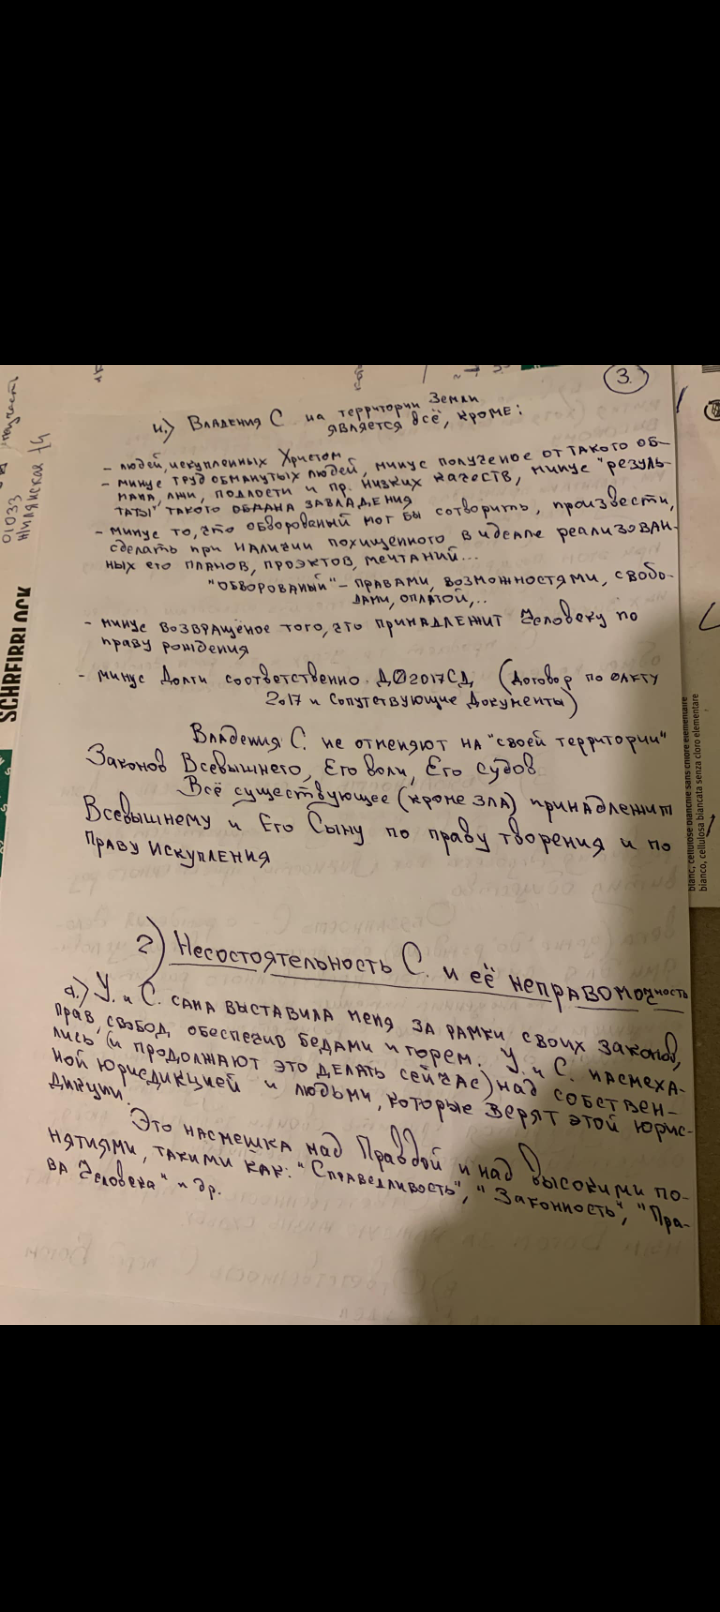 3.
и.) Владения С на территории Земли
является всё, кроме:
- людей, искупленных Христом
- минус труд обманутых людей, минус полученое от такого об-
мана, лжи, подлости и пр. низких качеств, минус "резуль-
таты" такого обмана завладения
- минус то, что обворованый мог бы сотворить, произвести,
сделать при наличии похищенного в идеале реализован-
ных его планов, проэктов, мечтаний...
"Обворованый" - правами, возможностями, свобо-
дами, оплатой,..
- минус возвращёное того, что принадлежит Человеку по
праву рождения
- минус Долги соответственно ДФ2017СД (Договор по факту
2017 и Сопутствующие Документы)
Владения С. не отменяют на "своей территории"
Законов Всевышнего, Его воли, Его судов
Всё существующее (кроме зла) принадлежит
Всевышнему и Его Сыну по праву творения и по
праву искупления
2) Несостоятельность С. и её неправомочность
а.) У. и С. сама выставила меня за рамки своих законов,
прав, свобод, обеспечив бедами и горем. У. и С. насмеха-
лись (и продолжают это делать сейчас) над собствен-
ной юрисдикцией и людьми, которые верят этой юрис-
дикции.
Это насмешка над Правдой и над высокими по-
нятиями, такими как: "Справедливость", "Законность", "Пра-
ва Человека" и др.
01033
Жилянская
SCHREIBBLOCK
bianco, cellulosa biancata senza cloro elementare